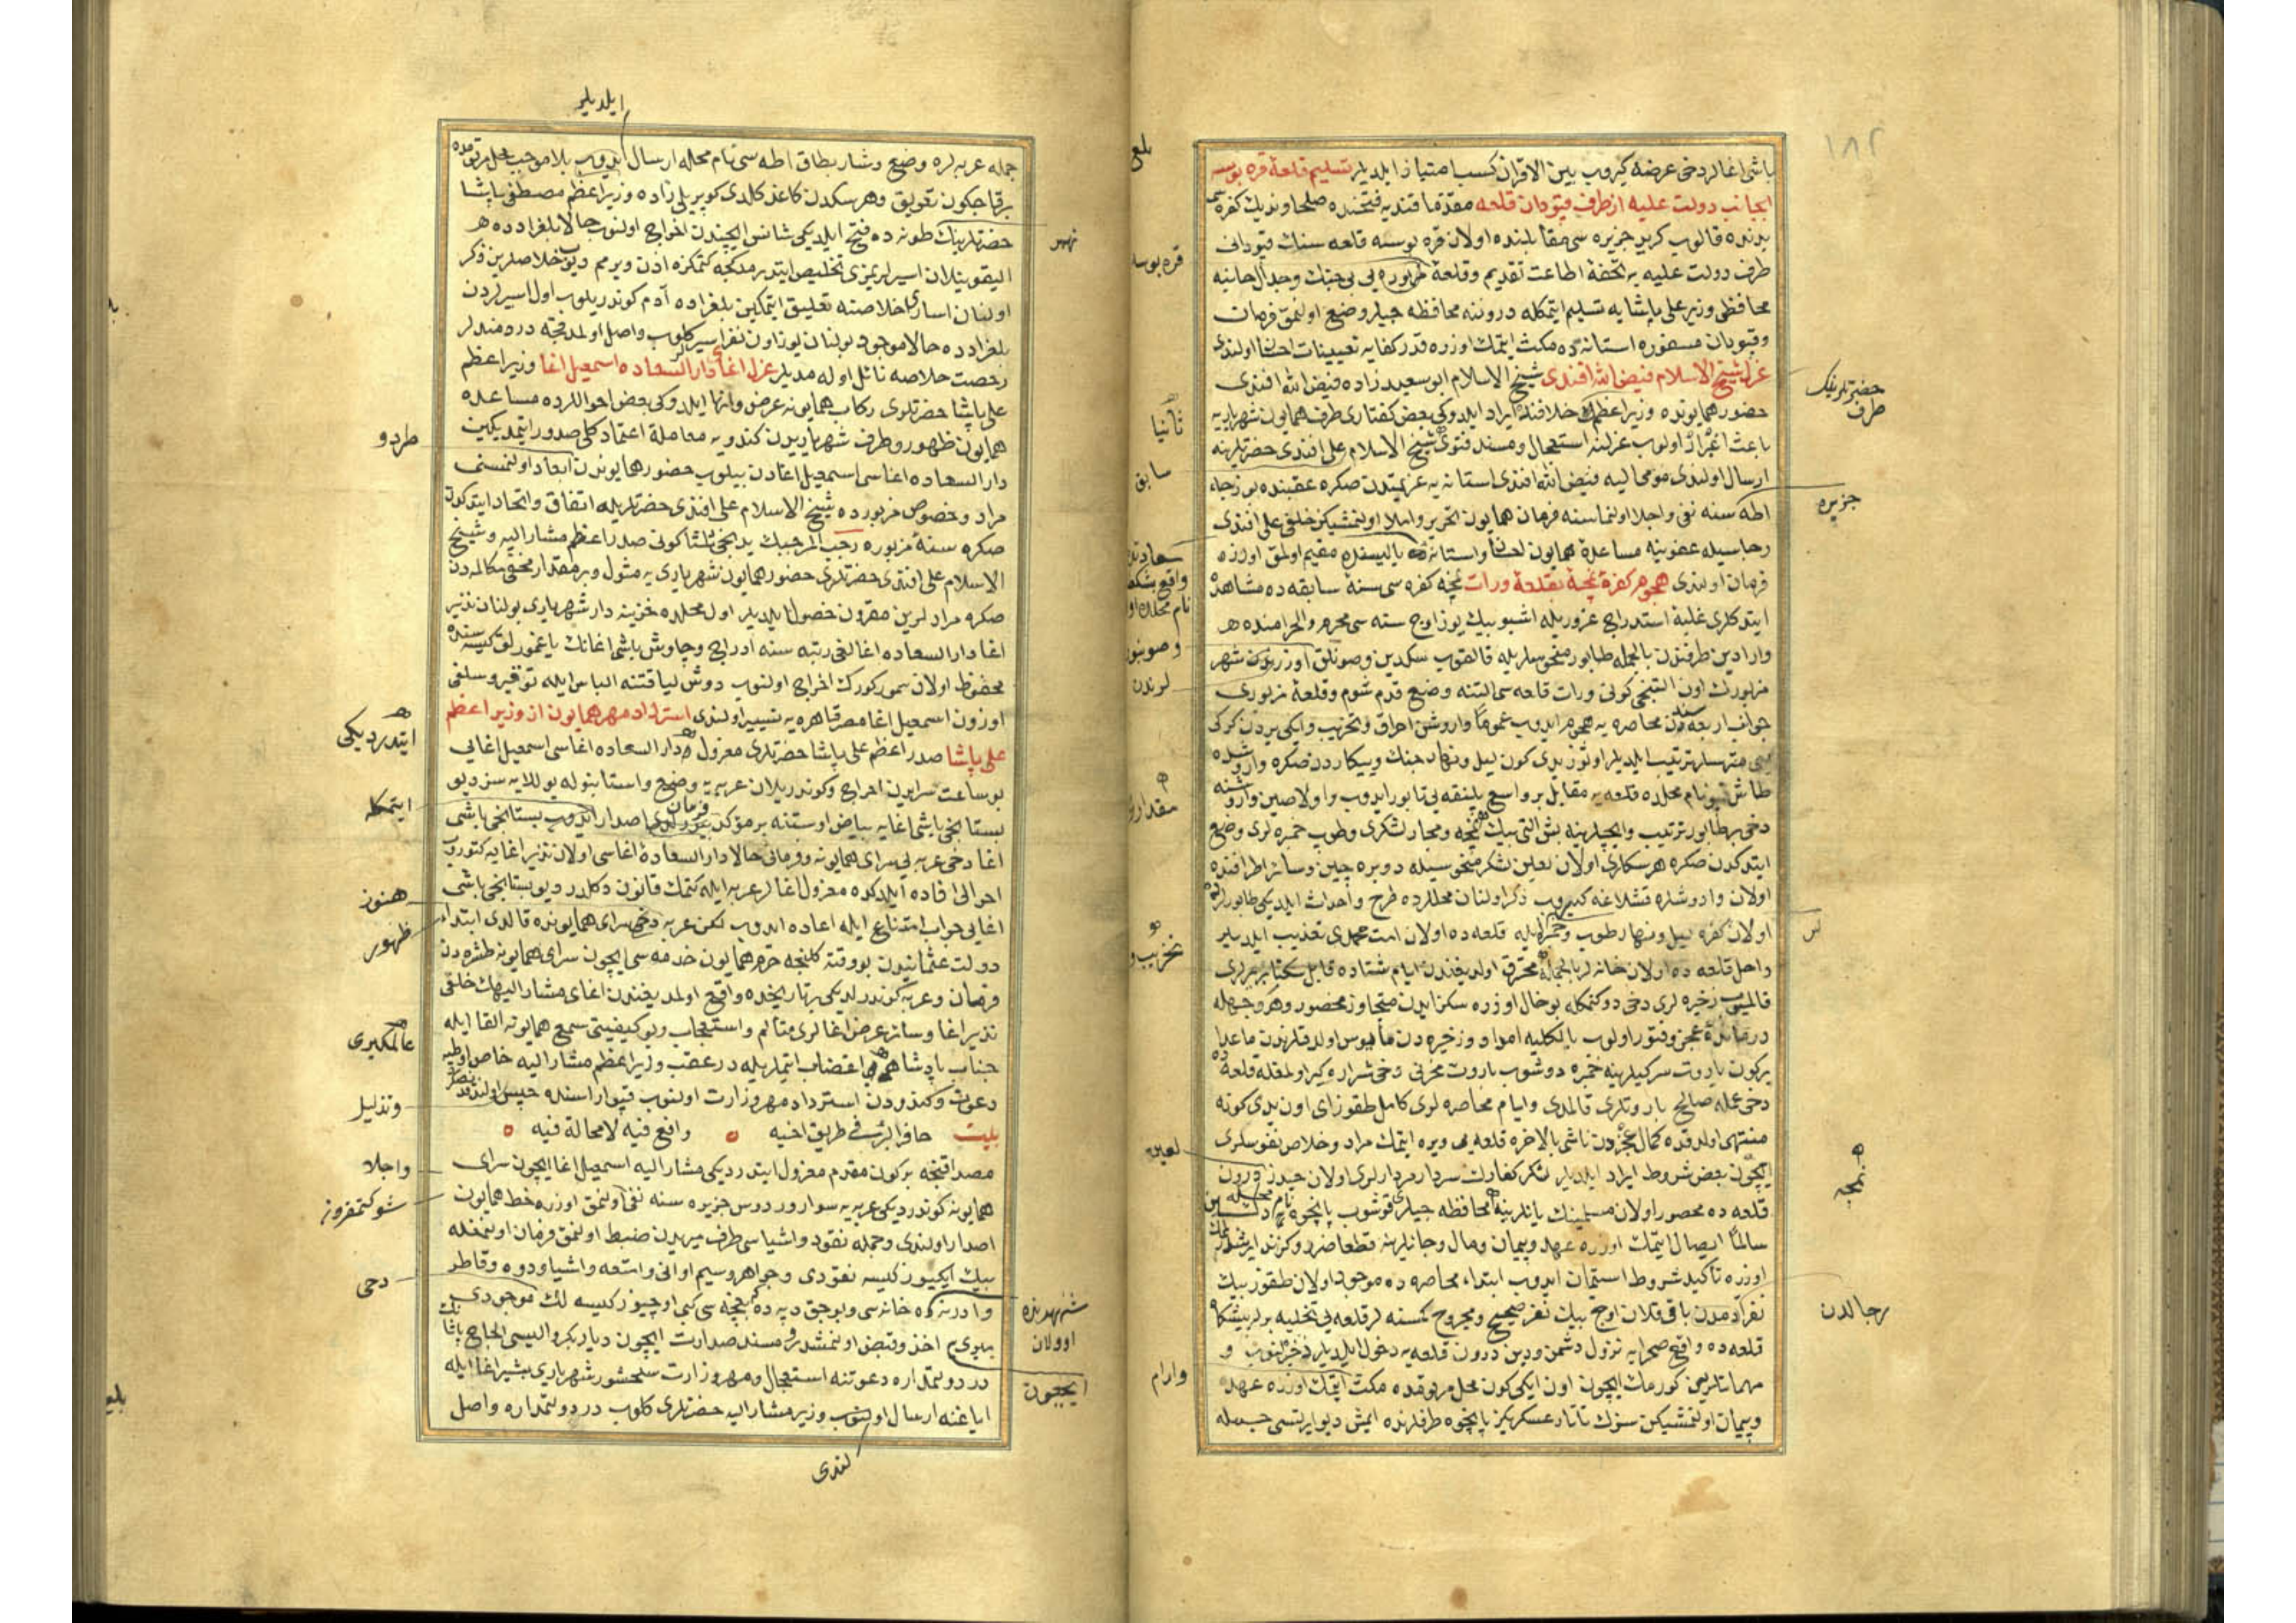 ١٨٢
باشی اغالر دخی عرضه کیروب بین الاقران کسب امتیاز ایلدیلر تسلیم قلعهٔ قره بوسه
ایجانب دولت علیه از طرف قپودان قلعه مقدّما قندیه فتحنده صلحا وندیك کفره سی
یدنده قالوب کرید جزیره سی مقابلنده اولان قره بوسه قلعه سنك قپودانی
طرف دولت علیه یه تحفهٔ اطاعت تقدیم وقلعهٔ مزبوره یی بی جنك وجدال حانیه
محافظی وزیر علی پاشایه تسلیم ایتمکله دروننه محافظه جیلر وضع اولنمق فرمان
وقپودان مسفوره استانه ده مکث ایتمك اوزره قدر کفایه تعیینات احسان اولندی
عزل شیخ الاسلام فیض الله افندی شیخ الاسلام ابو سعید زاده فیض الله افندی
حضور همایونده وزیر اعظمك خلافنده ایراد ایلدوکی بعض کفتاری طرف همایون شهریاریه
باعث اغبرار اولوب عزلنه استعجال ومسند فتوی شیخ الاسلام علی افندی حضرتلرینه
ارسال اولندی مومی الیه فیض الله افندی استانه یه عزیمتدن صکره عقبنده بوزجه
اطه سنه نفی واجلا اولنماسنه فرمان همایون تحریر واملا اولنمشیکن خلفی علی افندی
رجاسیله عفوینه مساعدهٔ همایون احسان واستانه ده یالیسنده مقیم اولمق اوزره
فرمان اولندی هجوم کفرهٔ نمچه بقلعهٔ ورات نمچه کفره سی سنهٔ سابقه ده مشاهده
ایتدکلری غلبهٔ استدراج غروریله اشبو بیك یوز اوج سنه سی محرم الحرامنده
وارادین طرفندن بالجمله طابور منحوسلریله قالقوب سکدین وصونلق اوزرندن شهر
مزبورك اون التنجی کونی ورات قلعه سی التنه وضع قدم شوم وقلعهٔ مزبوری
جوانب اربعه سندن محاصره یه هجوم ایدوب عموما واروشن احراق وتخریب وایکی یردن کرك
متریسلر ترتیب ایلدیلر اوتوز یدی کون لیل ونهار جنك وپیکاردن صکره واروشده
طاش کوپری نام محلده قلعه یه مقابل بر واسع پلنقه یی تابور ایدوب واولاصین واروشنه
دخی بر طابور ترتیب وایچلرینه بش التی بیك نمچه ومجار لشکری وطوب خمبره لری وضع
ایتدکدن صکره هرسکاری اولان لعین لشکر منحوسیله دوبره چین وسائر اطرافنده
اولان واروشلره قشلاغه کیروب ذکر اولنان محللرده طرح واحداث ایلدیکی طابورلرده
اولان کفره لیل ونهار طوب وخمبره ایله قلعه ده اولان امت محمدی تعذیب ایلدیلر
داخل قلعه ده اولان خانه لر بالجمله محترق اولدیغندن ایام شتاده قابل سکنا یرلری
قالمیوب زخیره لری دخی دوکنمکله بو حال اوزره سکز ایدن متجاوز محصور وهر وجهله
درمانده عجز وفتور اولوب بالکلیه امداد وزخیره دن مأیوس اولدقلرندن ماعدا
برکون باروت سرکیلرینه خمبره دوشوب باروت مخزنی دخی شراره کیر اولمغله قلعه ده
دخی عمله صالح باروتلری قالمدی وایام محاصره لری کامل طقوز ای اون یدی کونه
منتهی اولدقده کمال عجزدن ناشی بالاخره قلعه یی ویره ایتمك مراد وخلاص نفوسلری
ایچون بعض شروط ایراد ایلدیلر لشکر کفارك سردار مردارلری اولان حیدر درون
قلعه ده محصور اولان مسلمینك یانلرینه محافظه جیلر قوشوب پانچوه نام محله دك
سالما ایصال ایتمك اوزره عهد وپیمان ومال وجانلرینه قطعا ضرر وکزند ایرشدرلمامك
اوزره تأکید شروط استیمان ایدوب ابتداء محاصره ده موجود اولان طقوز بیك
نفر آدمدن باقی قلان اوچ بیك نفر صحیح ومجروح کمسنه لر قلعه یی تخلیه برله پیشکاه
قلعه ده واقع صحرایه نزول دشمن دین درون قلعه یه دخول ایلدیلر ذخیره لنوب و
مهماتلرینی کورمك ایچون اون ایکی کون محل مرقومده مکث ایتمك اوزره عهد
وپیمان اولنمشیکن سزك تاتار عسکریکز پانچوه طرفلرنده ایمش دیو ایرتسی جمله
بلغ
قره بوسه
حضرتلرینك
طرف
ثانیا
سابق
جزیره
سعادتله
مقداری
تخریب و
لعین
نمچه
رجالدن
وارام
ایلدیلر
جمله عربه لره وضع وشار بطاق اطه سی نام محله ارسال ایدوب بلا موجب محل مرقومده
برقاج کون تعویق وهرسکدن کاغد کلدی کوپریلی زاده وزیر اعظم مصطفی پاشا
حضرتلرینك طونه ده فتح ایلدیکی شانس ایچندن اخراج اولنوب حالا بلغرادده
الیقونیلان اسیرلریمزی تخلیص ایتدرمدکجه کتمکزه اذن ویرمم دیوب خلاصلرین ذکر
اولنان اسارای خلاصنه تعلیق ایتمکین بلغراده آدم کوندریلوب اول اسیرلردن
بلغرادده حالا موجود بولنان یوز اون نفر اسیر کلوب واصل اولمدقجه دردمندلر
رخصت خلاصه نائل اوله مدیلر عزل اغای دار السعاده اسمعیل اغا وزیر اعظم
علی پاشا حضرتلری رکاب همایونه عرض وانها ایلدوکی بعض احوالرده مساعده
همایون ظهور وطرف شهریاریدن کندویه معاملهٔ اعتماد کلی صدور ایتمدیکین
دار السعاده اغاسی اسمعیل اغادن بیلوب حضور همایوندن ابعاد اولنمسنی
مراد وخصوص مزبورده شیخ الاسلام علی افندی حضرتلریله اتفاق واتحاد ایتدکدن
صکره سنهٔ مزبوره رجب المرجبك یدنجی ثلثا کونی صدر اعظم مشار الیه وشیخ
الاسلام علی افندی حضرتلری حضور همایون شهریاری یه مثول وبر مقدار مخفی مکالمه دن
صکره مرادلرین مقرون حصول ایلدیلر اول محلده خزینه دار شهریاری بولنان نذیر
اغا دار السعاده اغالغی رتبه سنه ادراج وچاوش باشی اغانك یاغمورلق کیسه سنده
محفوظ اولان سمور کورك اخراج اولنوب دوش لیاقتنه الباس ایله توقیر وسلفی
اوزون اسمعیل اغا مصر قاهره یه تسییر اولندی استرداد مهر همایون از وزیر اعظم
علی پاشا صدر اعظم علی پاشا حضرتلری معزول دار السعاده اغاسی اسمعیل اغایی
بو ساعت سرایدن اخراج وکوندریلان عربه یه وضع واستانبوله یوللایه سز دیو
بستانجی باشی اغایه بیاض اوستنه بر موکد فرمان اصدار ایدوب بستانجی باشی
اغا دخی عربه یی سرای همایونه وفرمانی حالا دار السعاده اغاسی اولان نذیر اغایه کتوروب
احوالی افاده ایلدکده معزول اغالر عربه ایله کتمك قانون دکلدر دیو بستانجی باشی
اغایی جواب امتناع ایله اعاده ایدوب لکن عربه دخی سرای همایونده قالدی ابتداء
دولت عثمانیدن بو وقته کلنجه حرم همایون خدمه سی ایچون سرای همایونه طشره دن
فرمان وعربه کوندرلدیکی بر تاریخده واقع اولمدیغندن اغای مشار الیهك خلفی
نذیر اغا وسائر عرض اغالری متألم واستعجاب وبو کیفیتی سمع همایونه القا ایله
جناب پادشاهی اغضاب ایتملریله در عقب وزیر اعظم مشار الیه خاص اوطه یه
دعوت وکندودن استرداد مهر وزارت اولنوب قپو اراسنده حبس اولندقده
بیت حافر البئر فی طریق اخیه واقع فیه لا محالة فیه
مصداقنجه برکون مقدم معزول ایتدردیکی مشار الیه اسمعیل اغا ایچون سرای
همایونه کوندردیکی عربه یه سوار ورودس جزیره سنه نفی اولنمق اوزره خط همایون
اصدار اولندی وجمله نقود واشیاسی طرف میریدن ضبط اولنمق فرمان اولنمغله
بیك ایکیوز کیسه نقودی وجواهر وسیم اوانی وامتعه واشیا ودوه وقاطر
وادرنه ده خانه سی وبوجق دپه ده بغچه سی کبی اوچیوز کیسه لك موجودی
میری یه اخذ وقبض اولنمشدر ومسند صدارت ایچون دیاربکر والیسی الحاج علی پاشا
در دولتمداره دعوتنه استعجال ومهر وزارت سلحشور شهریاری بشیر اغا ایله
ایاغنه ارسال اولنوب وزیر مشار الیه حضرتلری کلوب در دولتمداره واصل
نهر
طرد و
ایتدردیکی
ایتمکله
هنوز
ظهور
عالمکیری
وتذلیل
واجلا
شوکتمقرونه
دخی
شهرنده
اوولان
ایچون
لندی